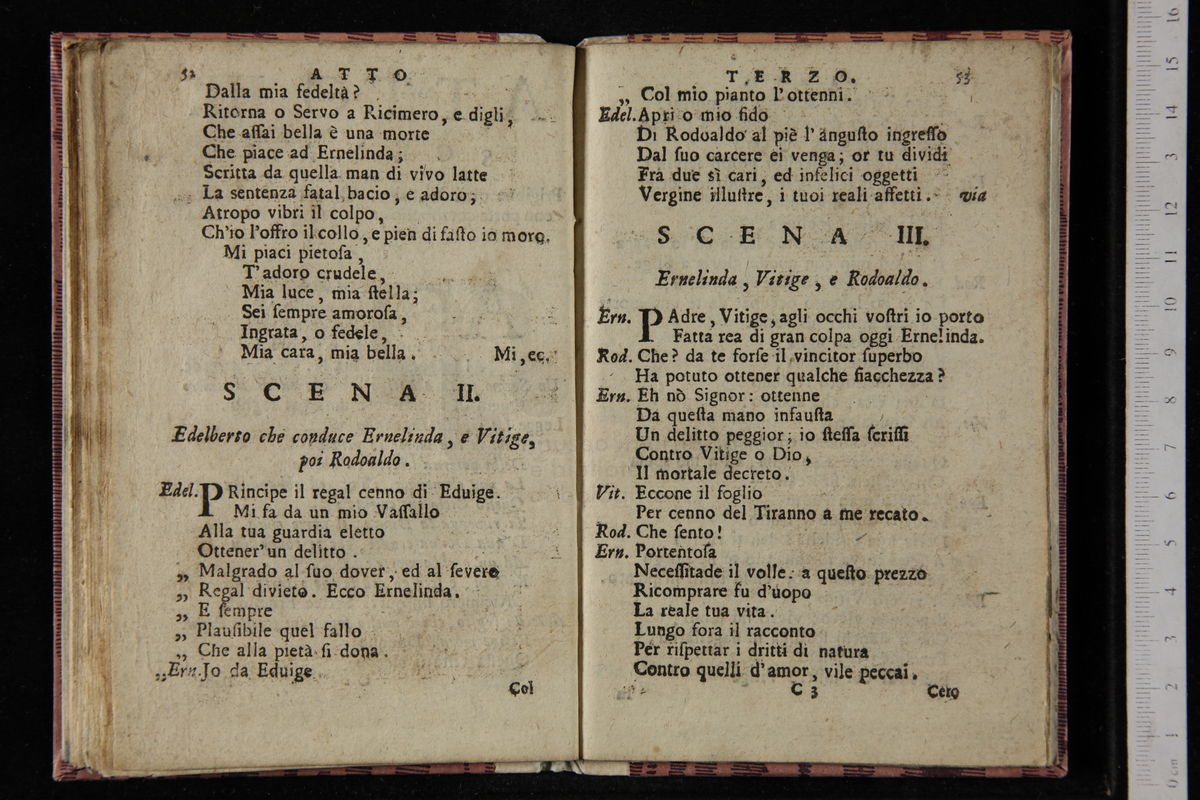 52 ATTO
Dalla mia fedeltà?
Ritorna o Servo a Ricimero, e digli,
Che aſſai bella è una morte
Che piace ad Ernelinda;
Scritta da quella man di vivo latte
La sentenza fatal bacio, e adoro;
Atropo vibri il colpo,
Ch'io l'offro il collo, e pien di faſto io moro.
Mi piaci pietoſa,
T'adoro crudele,
Mia luce, mia ſtella;
Sei ſempre amoroſa,
Ingrata, o fedele,
Mia cara, mia bella. Mi, ec.
SCENA II.
Edelberto che conduce Ernelinda, e Vitige,
poi Rodoaldo.
Edel. PRincipe il regal cenno di Eduige.
Mi fa da un mio Vaſſallo
Alla tua guardia eletto
Ottener' un delitto.
„ Malgrado al ſuo dover, ed al ſevero
„ Regal divieto. Ecco Ernelinda.
„ E ſempre
„ Plauſibile quel fallo
„ Che alla pietà ſi dona.
„Ern. Jo da Eduige
Col
TERZO. 53
„ Col mio pianto l'ottenni.
Edel. Apri o mio fido
Di Rodoaldo al piè l'anguſto ingreſſo
Dal ſuo carcere ei venga; or tu dividi
Fra due sì cari, ed infelici oggetti
Vergine illuſtre, i tuoi reali affetti. via
SCENA III.
Ernelinda, Vitige, e Rodoaldo.
Ern. PAdre, Vitige, agli occhi voſtri io porto
Fatta rea di gran colpa oggi Ernelinda.
Rod. Che? da te forſe il vincitor ſuperbo
Ha potuto ottener qualche fiacchezza?
Ern. Eh nò Signor: ottenne
Da queſta mano infauſta
Un delitto peggior; io ſteſſa ſcriſſi
Contro Vitige o Dio,
Il mortale decreto.
Vit. Eccone il foglio
Per cenno del Tiranno a me recato.
Rod. Che ſento!
Ern. Portentoſa
Neceſſitade il volle: a queſto prezzo
Ricomprare fu d'uopo
La reale tua vita.
Lungo fora il racconto
Per riſpettar i dritti di natura
Contro quelli d'amor, vile peccai.
C 3 Cero
0 cm 1 2 3 4 5 6 7 8 9 10 11 12 13 14 15 16